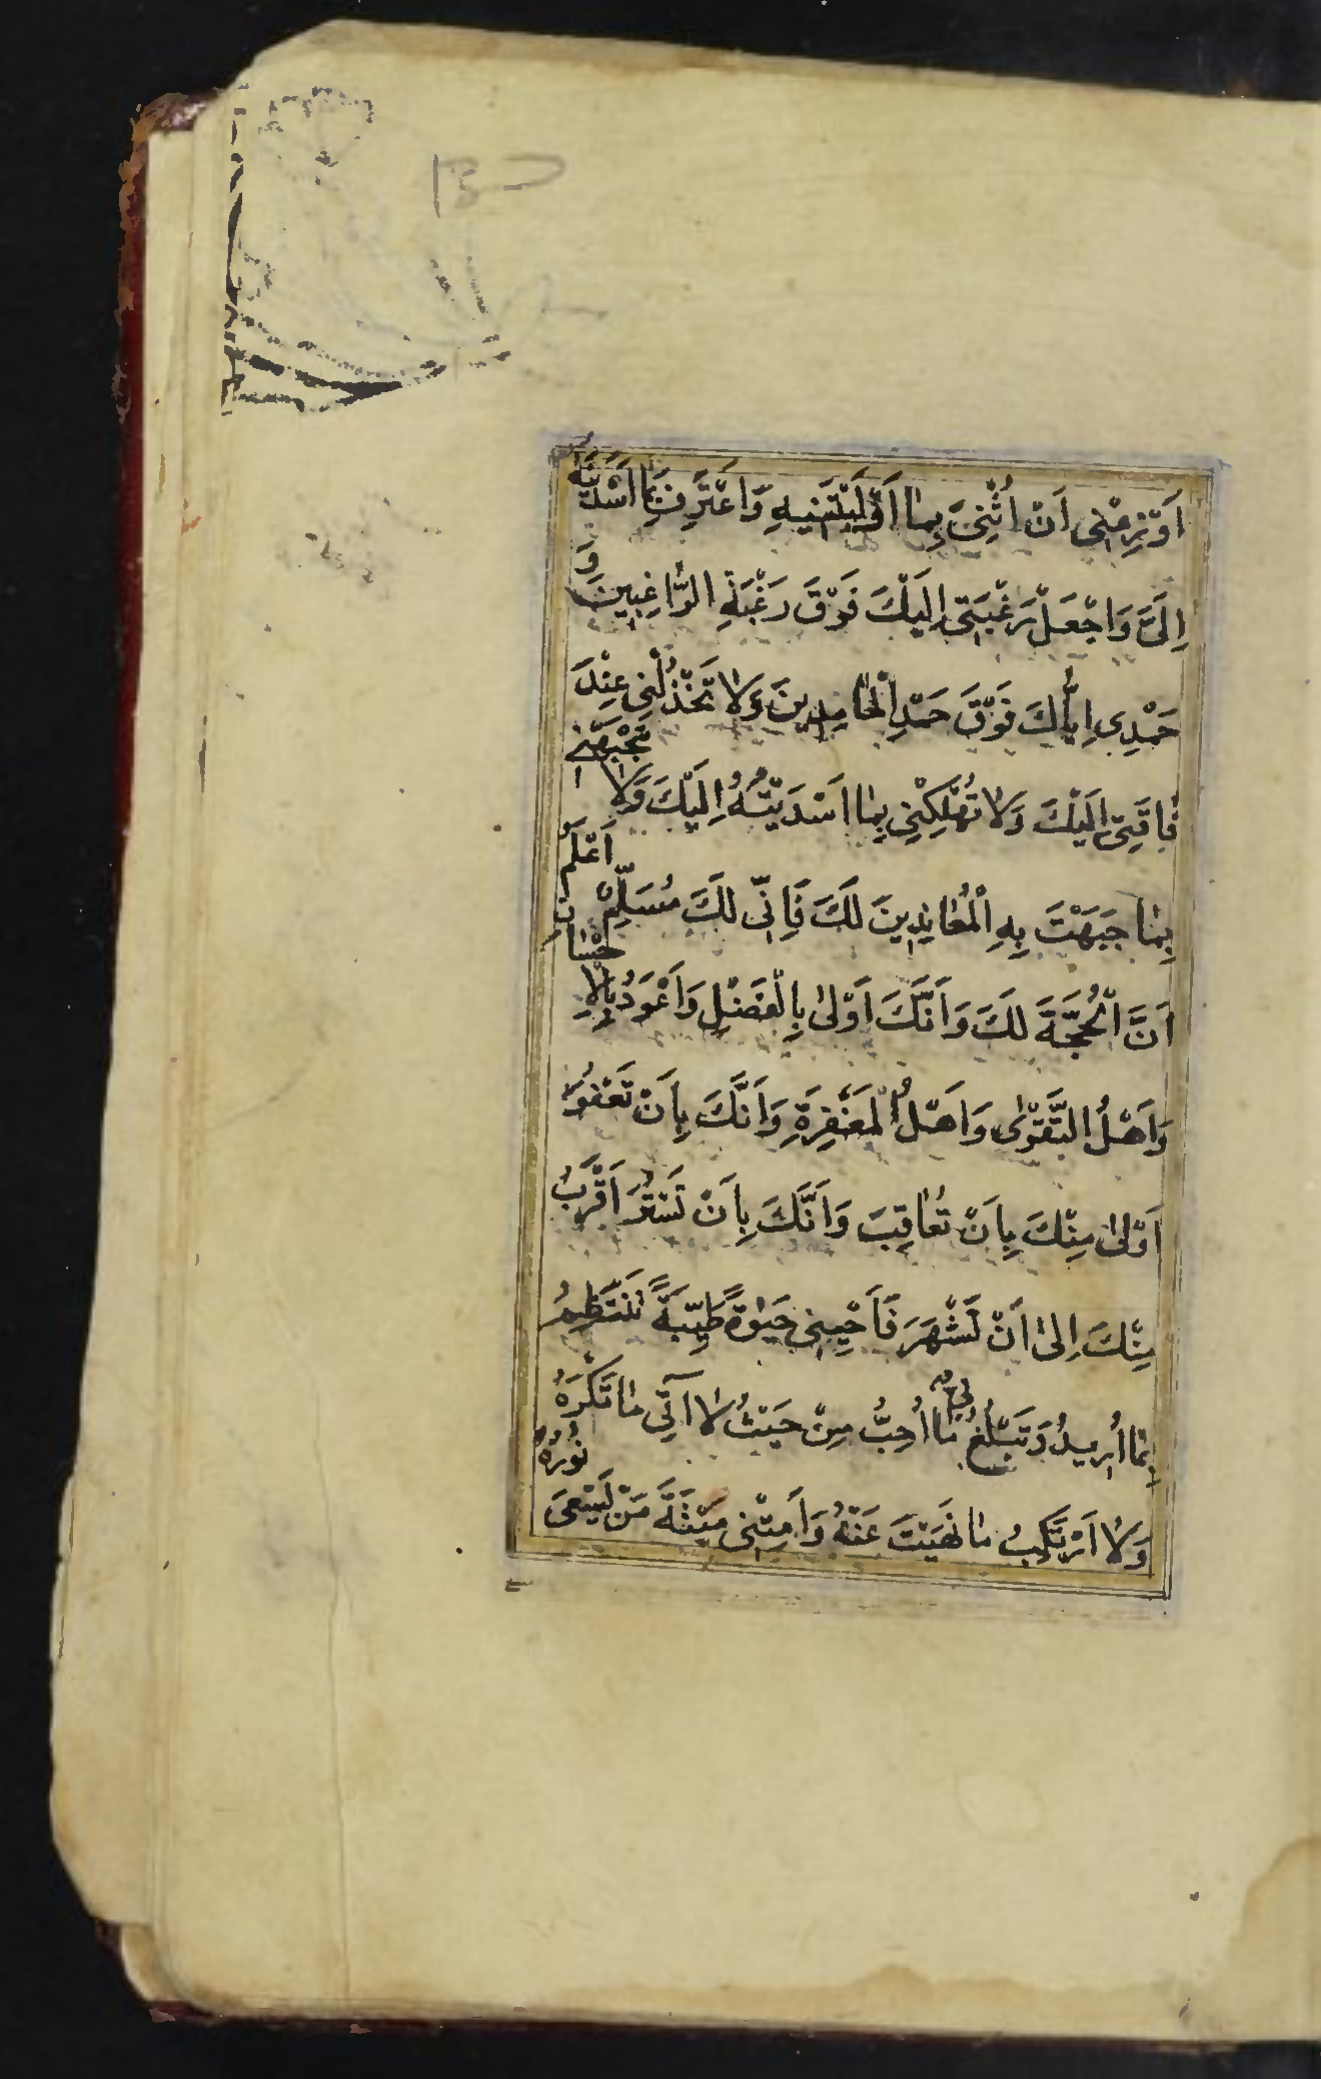 اَوْزِعْنِي اَنْ اُثْنِيَ بِمٰا اَوْلَيْتَنِيهِ وَاَعْتَرِفَ بِمٰا اَسْدَيْتَهُ
اِلَيَّ وَاجْعَلْ رَغْبَتِي اِلَيْكَ فَوْقَ رَغْبَةِ الرّٰاغِبِينَ وَ
حَمْدِي اِيّٰاكَ فَوْقَ حَمْدِ الْحٰامِدِينَ وَلاٰ تَخْذُلْنِي عِنْدَ
فٰاقَتِي اِلَيْكَ وَلاٰ تُهْلِكْنِي بِمٰا اَسْدَيْتُهُ اِلَيْكَ وَلاٰ تَجْبَهْنِي
بِمٰا جَبَهْتَ بِهِ الْمُعٰانِدِينَ لَكَ فَاِنِّي لَكَ مُسَلِّمٌ اَعْلَمُ
اَنَّ الْحُجَّةَ لَكَ وَاَنَّكَ اَوْلىٰ بِالْفَضْلِ وَاَعْوَدُ بِالْاِحْسٰانِ
وَاَهْلُ التَّقْوٰى وَاَهْلُ الْمَغْفِرَةِ وَاَنَّكَ بِاَنْ تَعْفُوَ
اَوْلىٰ مِنْكَ بِاَنْ تُعٰاقِبَ وَاَنَّكَ بِاَنْ تَسْتُرَ اَقْرَبُ
مِنْكَ اِلىٰ اَنْ تَشْهَرَ فَاَحْيِنِي حَيٰوةً طَيِّبَةً تَنْتَظِمُ
بِمٰا اُرِيدُ وَتَبْلُغُ بِي مٰا اُحِبُّ مِنْ حَيْثُ لاٰ آتِي مٰا تَكْرَهُ
وَلاٰ اَرْتَكِبُ مٰا نَهَيْتَ عَنْهُ وَاَمِتْنِي مَيْتَةَ مَنْ يَسْعىٰ نُورُهُ